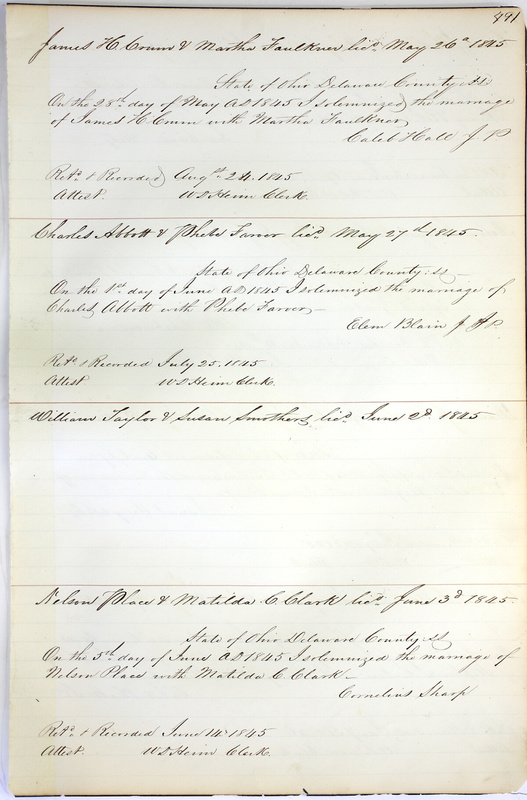 491
James H. Crum & Martha Faulkner licd. May 26th 1845
State of Ohio Delaware County: ss
On the 28th day of May AD 1845 I solemnized the marriage
of James H. Crum with Martha Faulkner
Caleb Hall J. P
Retd. & Recorded Augst. 24. 1845
Attest. W D Heim Clerk
Charles Abbott & Phebe Farver licd. May 27th 1845.
State of Ohio Delaware County: ss
On the 1st. day of June AD 1845 I solemnized the marriage of
Charles Abbott with Phebe Farver
Elem Blain J P
Retd. & Recorded July 25. 1845
Attest W D Heim Clerk.
William Taylor & Susan Smothers licd. June 2d. 1845
Nelson Place & Matilda C. Clark licd. June 3d 1845.
State of Ohio Delaware County: ss
On the 5th. day of June AD 1845 I solemnized the marriage of
Nelson Place with Matilda C. Clark
Cornelius Sharp
Retd. & Recorded June 14. 1845
Attest. W D Heim Clerk.